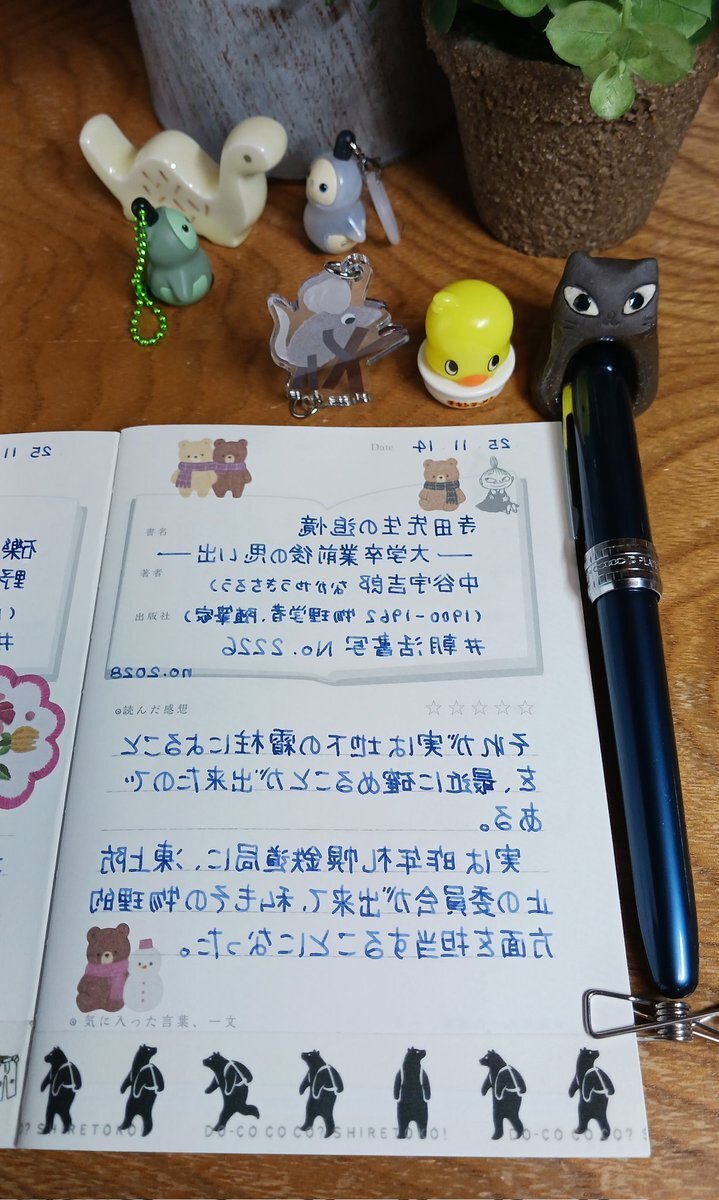 Date 25. 11. 14
書名 寺田先生の追憶
― 大学卒業前後の思い出 ―
著者 中谷宇吉郎 なかやうきちろう)
出版社 (1900-1962 物理学者、随筆家)
#朝活書写 No. 2226
no.2028
読んだ感想 ☆☆☆☆☆
それが実は地下の霜柱によること
を、最近に確めることが出来たので
ある。
実は昨年札幌鉄道局に、凍上防
止の委員会が出来て、私もその物理的
方面を担当することになった。
気に入った言葉、一文
O? SHIRETOKO! DO-CO CO CO? SHIRETOKO! DO-CO CO CO? S
25 11
野
#